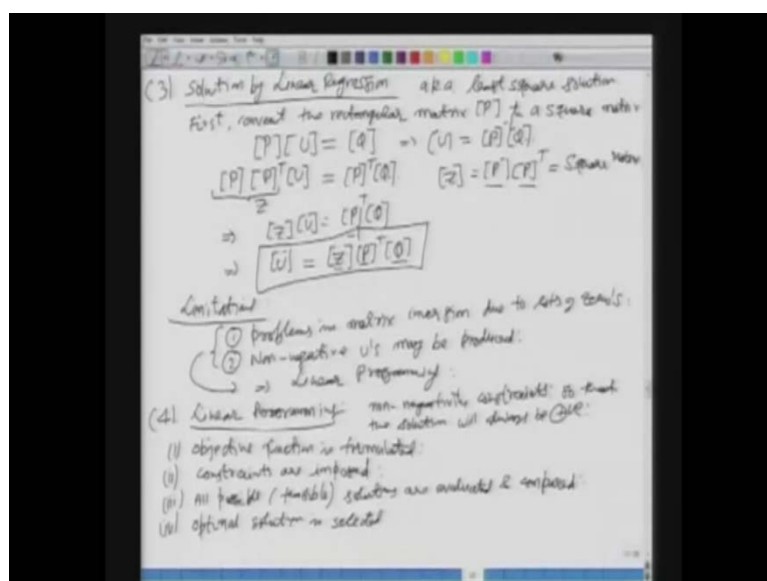 (3) Solution by Linear Regression a.k.a least square solution
First, convert the rectangular matrix [P] to a square matrix
[P][U] = [Q] ⇒ [U] = [P]⁻¹[Q]
[P][P]ᵀ[U] = [P]ᵀ[Q] [Z] = [P][P]ᵀ = Square Matrix
Z
⇒ [Z][U] = [P]ᵀ[Q]
⇒ [U] = [Z]⁻¹[P]ᵀ[Q]
Limitations
① problems in matrix inversion due to lots of zero's.
② Non-negative U's may be produced.
⇒ Linear Programming.
(4) Linear Programming: non negativity constraints so that
the solution will always be +ve.
(i) objective function is formulated.
(ii) constraints are imposed.
(iii) All possible (feasible) solutions are evaluated & compared
(iv) optimal solution is selected